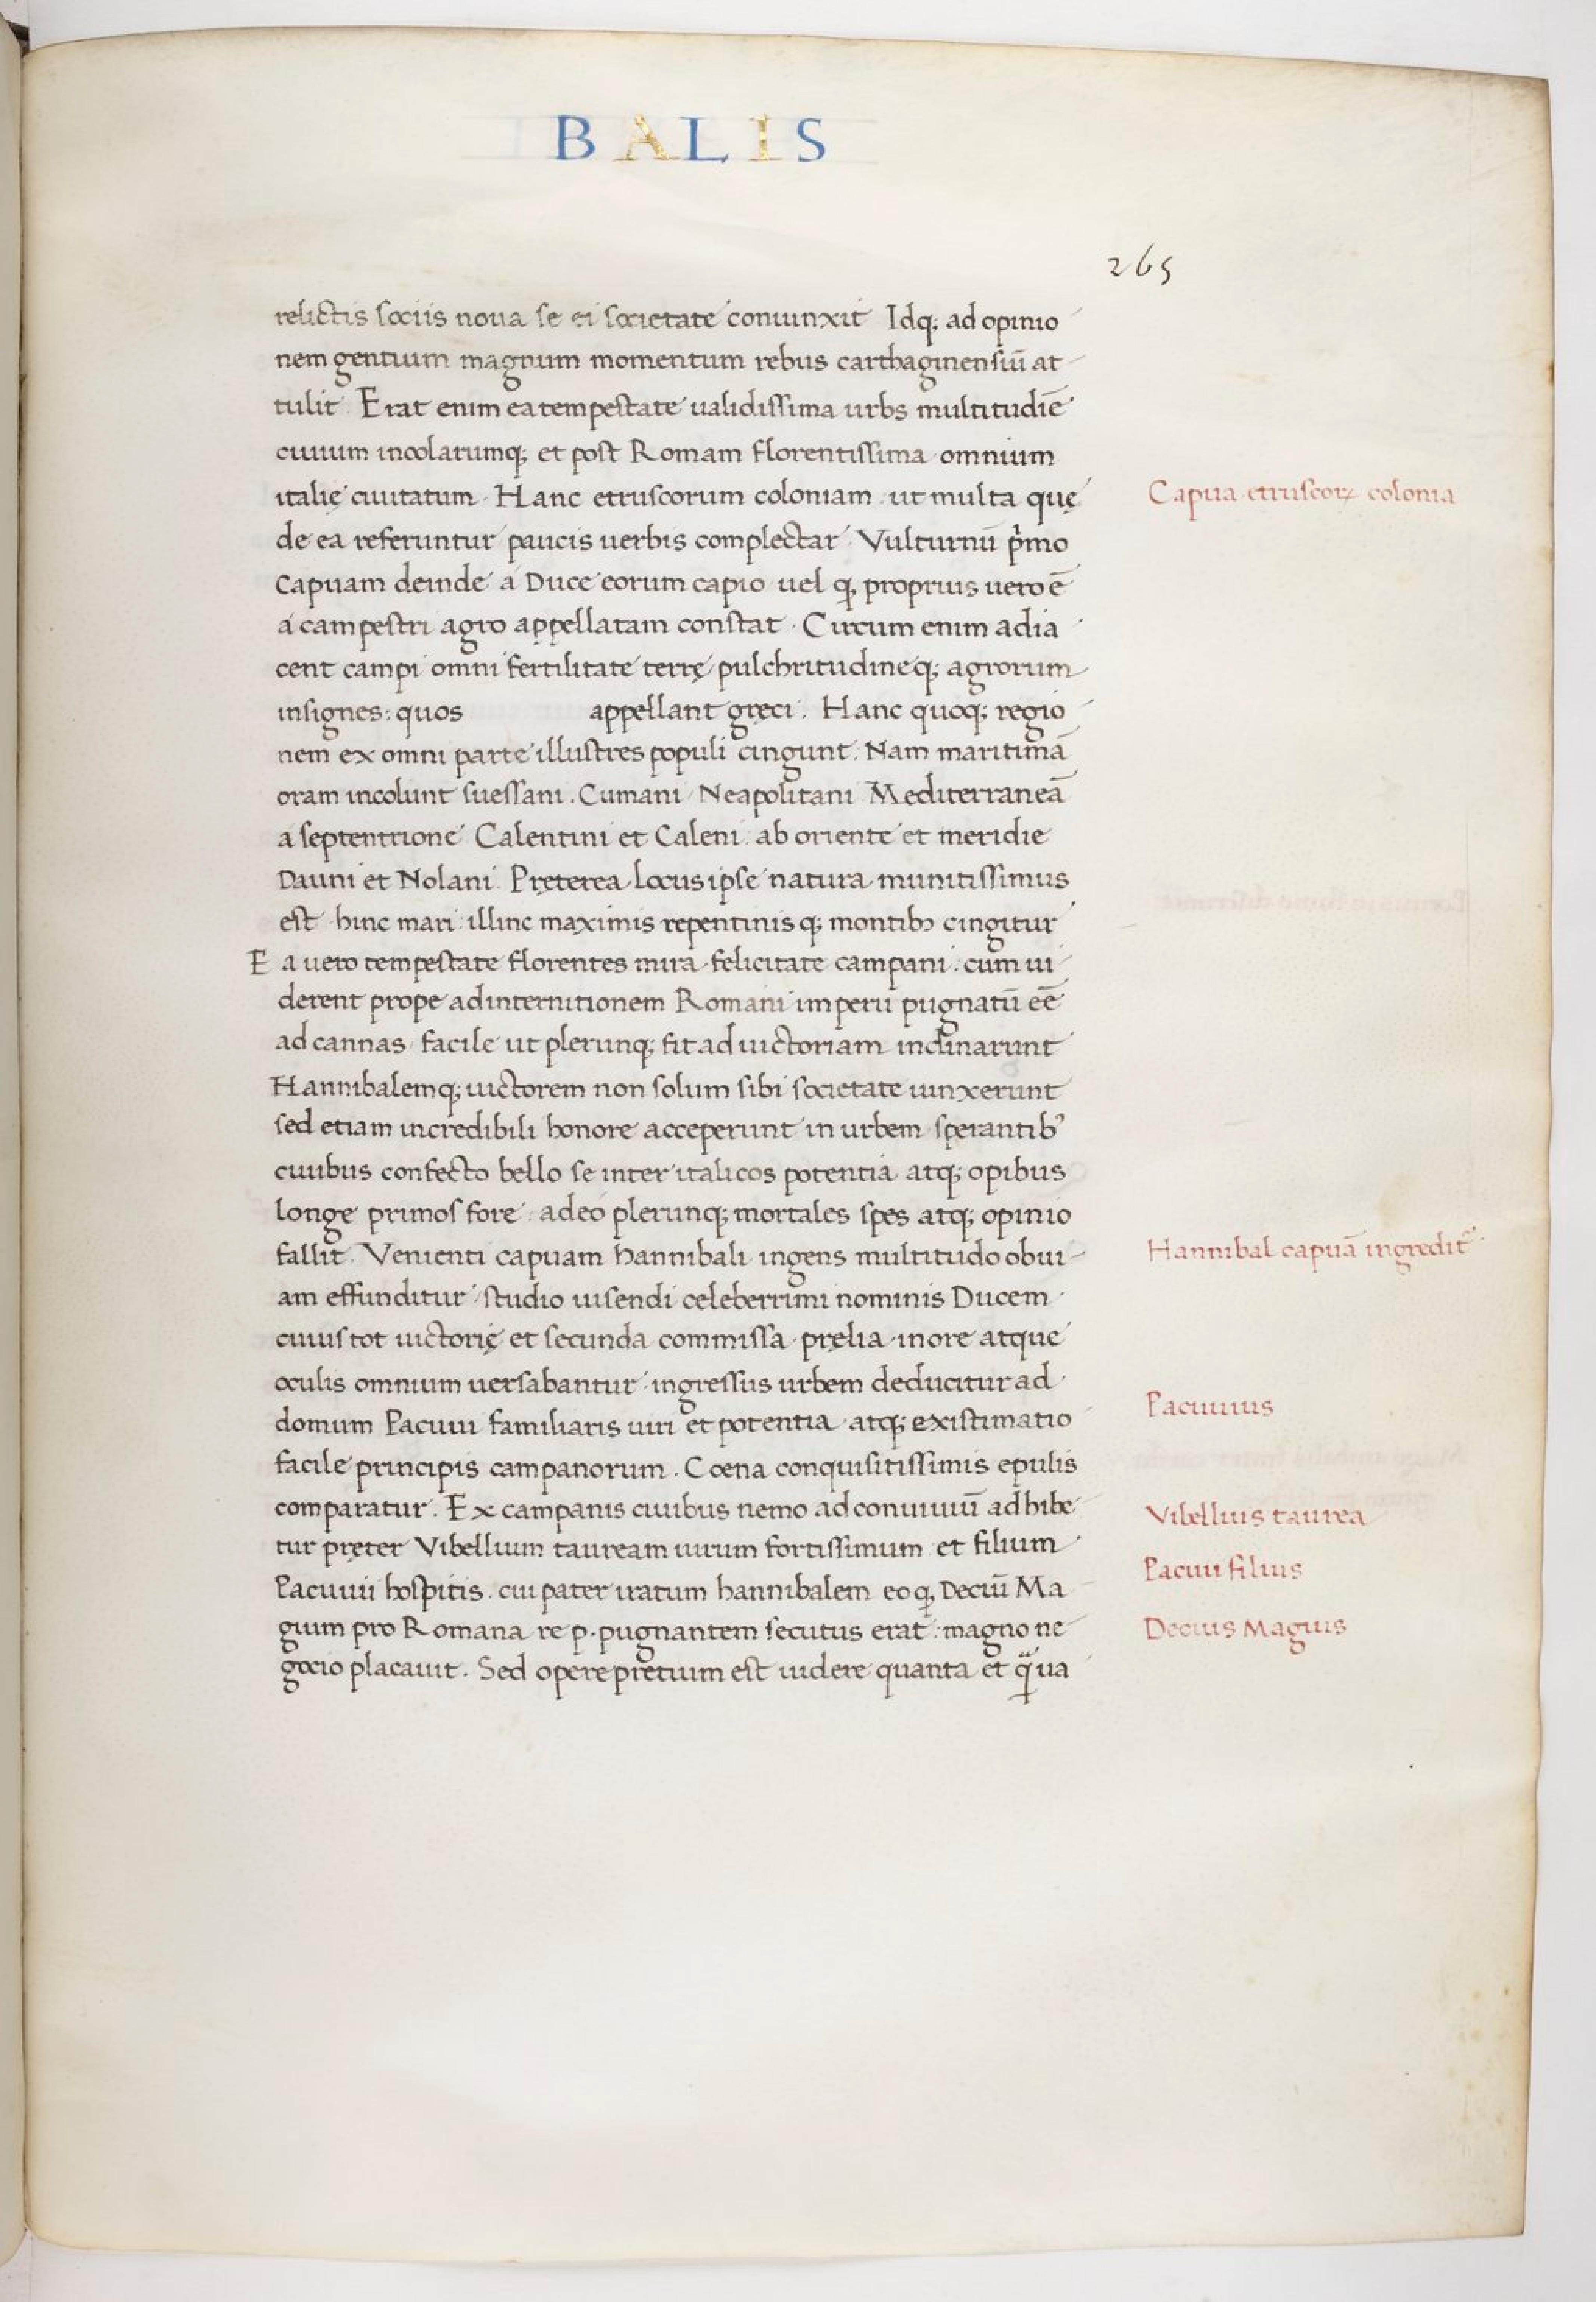 BALIS
265
relictis sociis noua se ei societate coniunxit Idq; ad opinio
nem gentium magnum momentum rebus carthaginensiū at
tulit Erat enim ea tempestate ualidissima urbs multitudīe
ciuium incolarumq; et post Romam florentissima omnium
italię ciuitatum. Hanc etruscorum coloniam ut multa quę
Capua etruscoꝝ colonia
de ea referuntur paucis uerbis complectar Vulturnū pͥmo
Capuam deinde á Duce eorum capio uel ꝙ proprius uero ē
á campestri agro appellatam constat. Circum enim adia
cent campi omni fertilitate terrę pulchritudineq; agrorum
insignes: quos appellant gręci. Hanc quoq; regio
nem ex omni parte illustres populi cingunt. Nam maritimā
oram incolunt suessani. Cumani Neapolitani Mediterraneā
a septentrione Calentini et Caleni. ab oriente et meridie
Dauni et Nolani. Pręterea locus ipse natura munitissimus
est hinc mari: illinc maximis repentinisq; montibꝫ cingitur
Ea uero tempestate florentes mira felicitate campani. cum ui
derent prope ad internitionem Romani imperii pugnatū eē
ad cannas facile ut plerunq; fit ad uictoriam inclinarunt
Hannibalemq; uictorem non solum sibi societate uinxerunt
sed etiam incredibili honore acceperunt in urbem sperantibꝰ
ciuibus confecto bello se inter italicos potentia atq; opibus
longe primos fore: adeo plerunq; mortales spes atq; opinio
fallit. Venienti capuam hannibali ingens multitudo obui
Hannibal capuā ingredit᷑
am effunditur studio uisendi celeberrimi nominis Ducem
cuius tot uictorię et secunda commissa pręlia in ore atque
oculis omnium uersabantur ingressus urbem deducitur ad
domum Pacuui familiaris uiri et potentia atq; existimatio
Pacuuius
facile principis campanorum. Coena conquisitissimis epulis
comparatur. Ex campanis ciuibus nemo ad conuiuiū adhibe
Vibellius taurea
tur pręter Vibellium tauream uirum fortissimum et filium
Pacuui filius
Pacuuii hospitis. cui pater iratum hannibalem eo ꝙ Deciū Ma
gium pro Romana re p. pugnantem secutus erat: magno ne
Decius Magius
gocio placauit. Sed operepretium est uidere quanta et